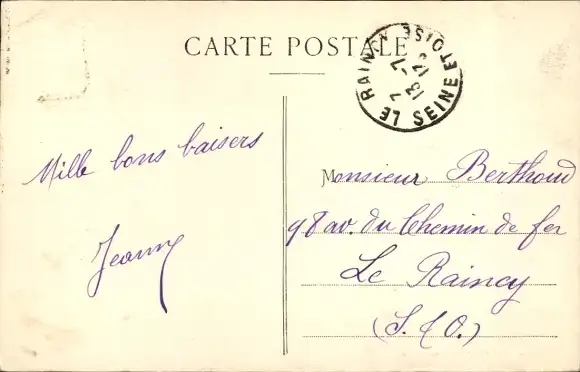 CARTE POSTALE
LE RAINCY
SEINE ET OISE
Mille bons baisers
Jeanny
Monsieur Berthoud
98 av. du Chemin de fer
Le Raincy
(S. & O.)